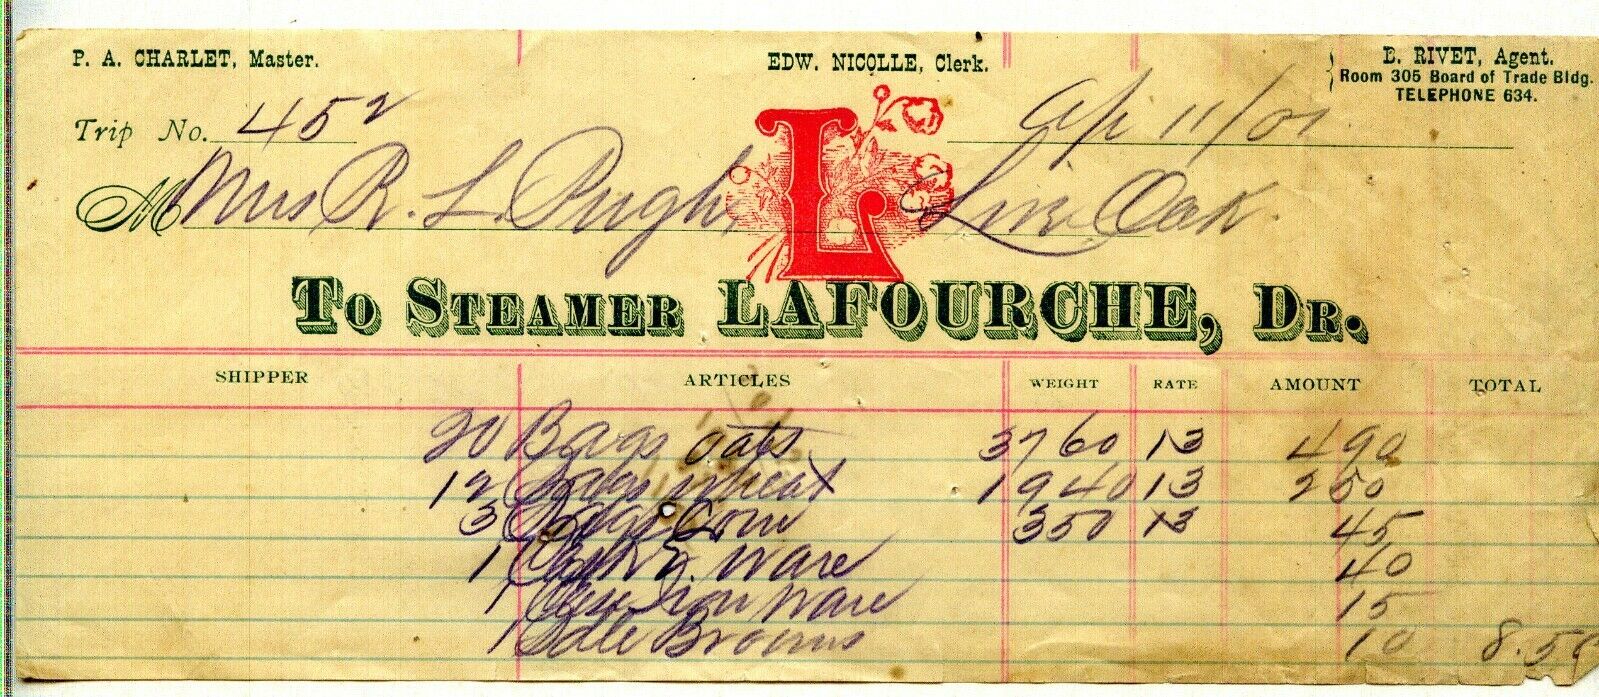 P. A. CHARLET, Master. EDW. NICOLLE, Clerk. E. RIVET, Agent.
Room 305 Board of Trade Bldg.
TELEPHONE 634.
Trip No. 452 Apr 11/01
M Mrs R. L. Pugh, Live Oak.
L
TO STEAMER LAFOURCHE, DR.
SHIPPER ARTICLES WEIGHT RATE AMOUNT TOTAL
20 Bags oats 3760 13 490
12 Bags Wheat 1940 13 250
3 Bags Corn 350 13 45
1 E. Ware 40
1 Iron Ware 15
1 Bale Brooms 10 8.50